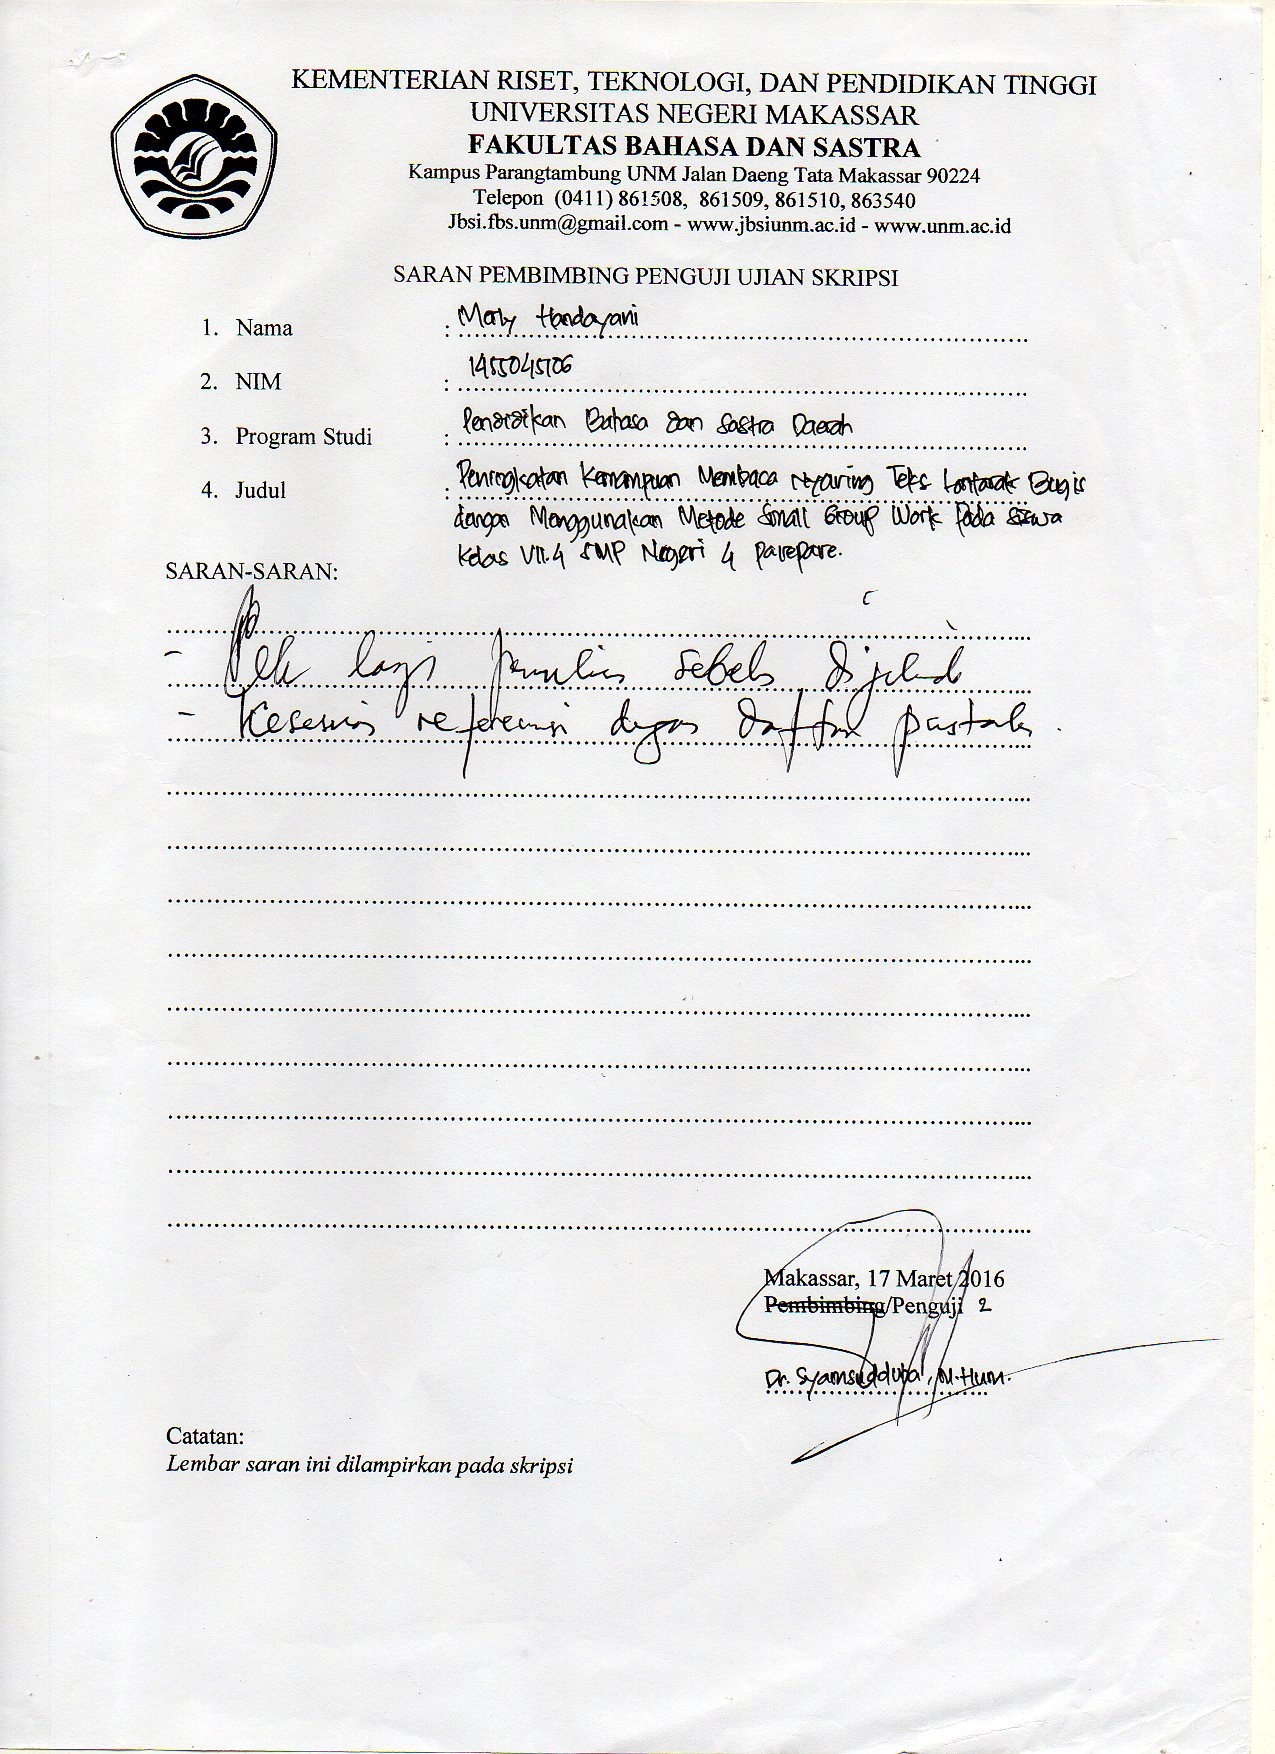 KEMENTERIAN RISET, TEKNOLOGI, DAN PENDIDIKAN TINGGI
UNIVERSITAS NEGERI MAKASSAR
FAKULTAS BAHASA DAN SASTRA
Kampus Parangtambung UNM Jalan Daeng Tata Makassar 90224
Telepon (0411) 861508, 861509, 861510, 863540
Jbsi.fbs.unm@gmail.com - www.jbsiunm.ac.id - www.unm.ac.id
SARAN PEMBIMBING PENGUJI UJIAN SKRIPSI
1. Nama : Handayani
2. NIM :
3. Program Studi : Pendidikan Bahasa dan Sastra Daerah
4. Judul : Peningkatan Kemampuan Membaca Nyaring Teks Lontarak Bugis
dengan Menggunakan Metode Small Group Work Pada Siswa
Kelas VII.4 SMP Negeri 4 Parepare.
SARAN-SARAN:
- lagi
- referensi daftar
Makassar, 17 Maret 2016
Pembimbing/Penguji 2
Dr. M.Hum.
Catatan:
Lembar saran ini dilampirkan pada skripsi